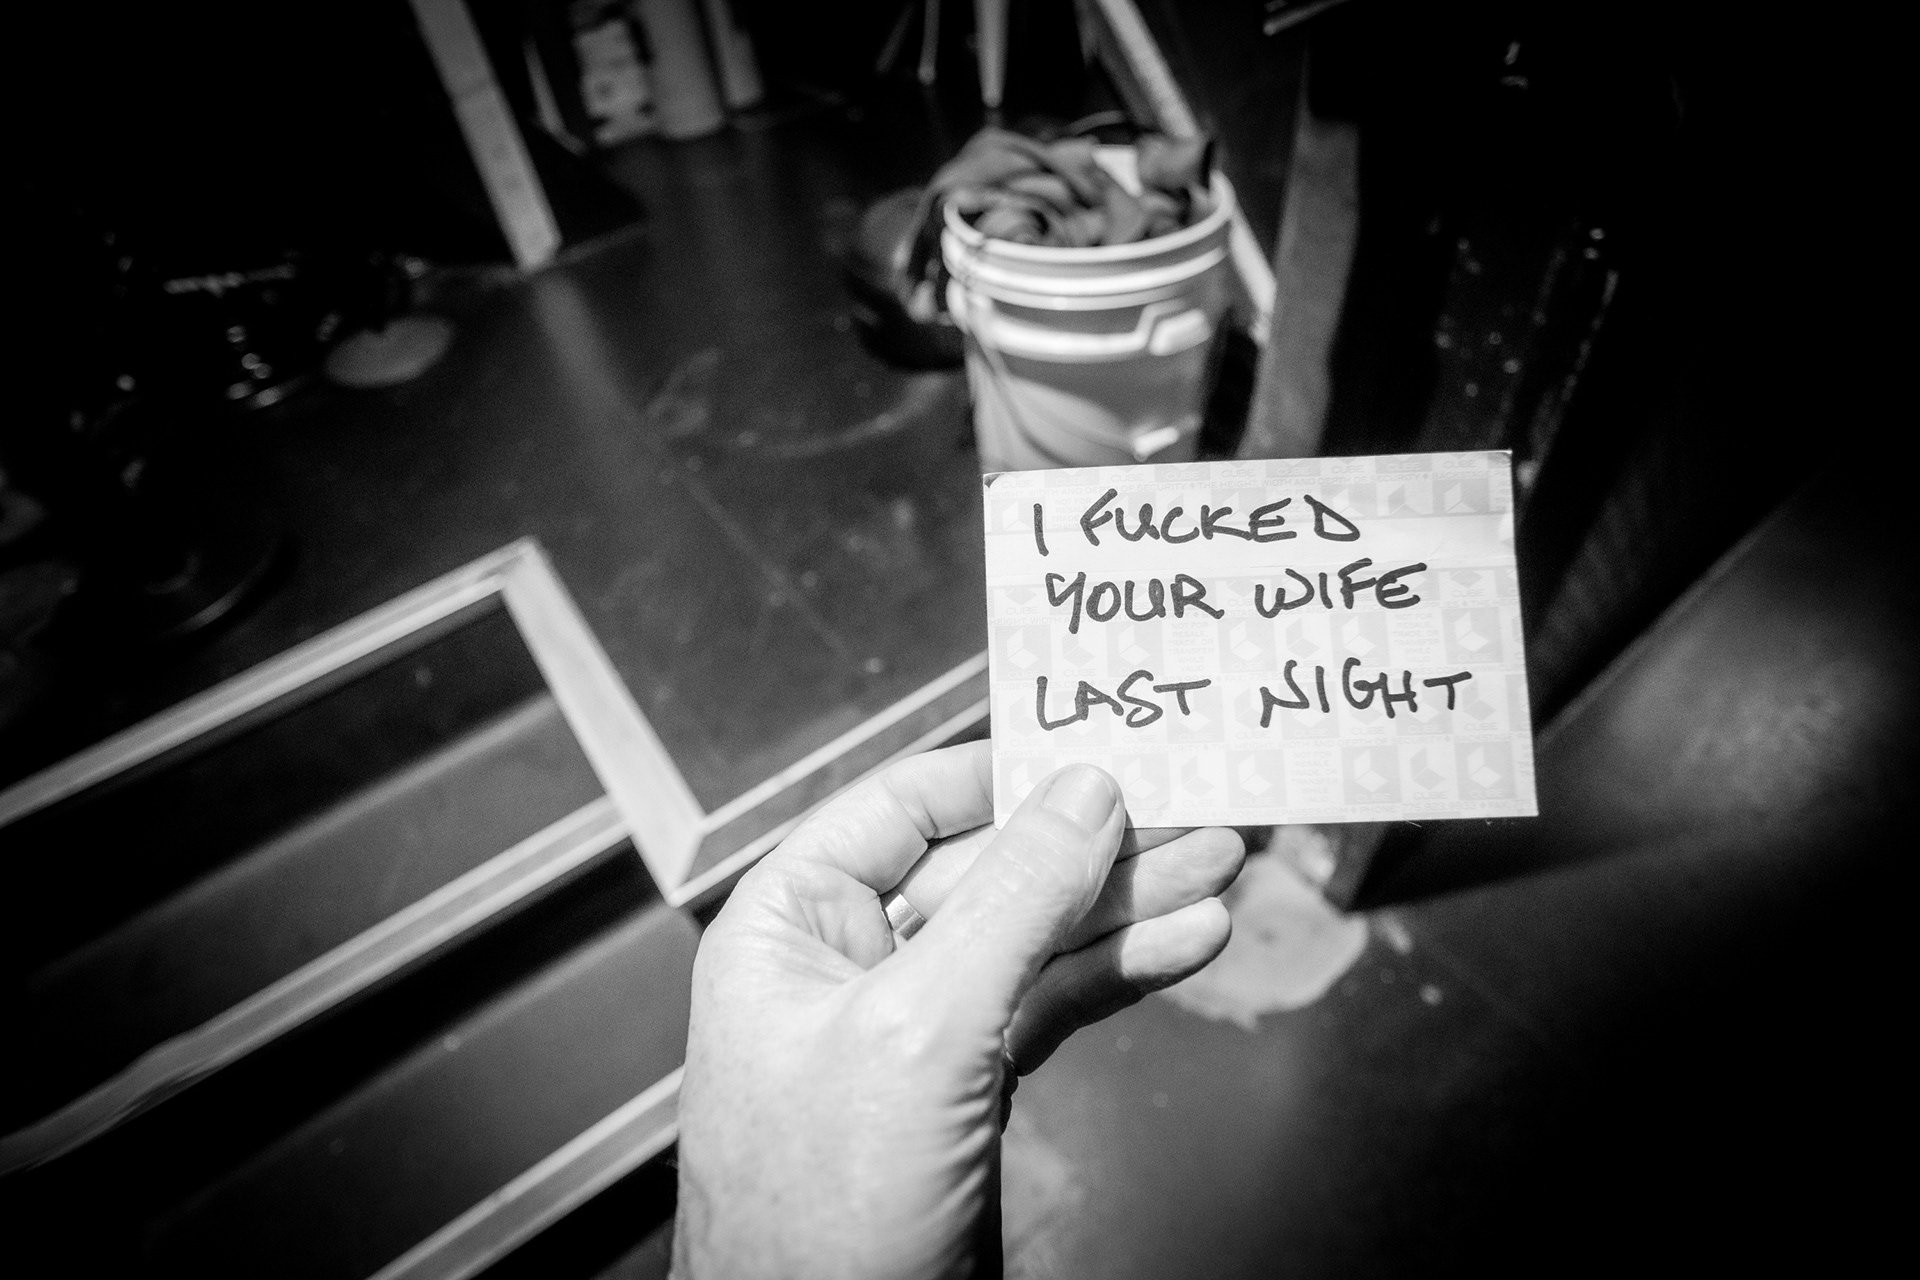 I FUCKED
YOUR WIFE
LAST NIGHT